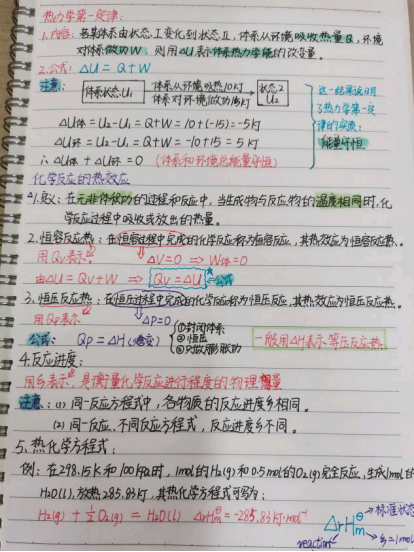 热力学第一定律：
1.内容：若某体系由状态Ⅰ变化到状态Ⅱ，体系从环境吸收热量Q，环境
对体系做功W，则用△U表示体系热力学能的改变量。
2.公式：△U = Q+W
注意：
体系状态Ⅰ U₁
体系从环境吸热10kJ
体系对环境做功15kJ
状态2 U₂
△U体 = U₂-U₁ = Q+W = 10+(-15) = -5 kJ
△U环 = U₂-U₁ = Q+W = -10+15 = 5 kJ
∴ △U体 + △U环 = 0 (体系和环境总能量守恒)
这一结果说明
了热力学第一定
律的实质：
能量守恒
化学反应的热效应
1.定义：在无非体积功的过程和反应中，当生成物与反应物的温度相同时，化
学反应过程中吸收或放出的热量。
2.恒容反应热：在恒容过程中完成的化学反应称为恒容反应，其热效应为恒容反应热。
用Qv表示 △V=0 ⇒ W体=0
由△U=Qv+W ⇒ Qv=△U 公式
3.恒压反应热：在恒压过程中完成的化学反应称为恒压反应，其热效应为恒压反应热。
用Qp表示 △P=0
公式：Qp=△H(焓变)
①封闭体系
②恒压
③只做膨胀功
一般用△H表示等压反应热
4.反应进度：
用ξ表示，是衡量化学反应进行程度的物理量
注意：(1) 同一反应方程式中，各物质的反应进度ξ相同。
(2) 同一反应，不同反应方程式，反应进度ξ不同。
5、热化学方程式：
例：在298.15K和100kPa时，1mol的H₂(g)和0.5mol的O₂(g)完全反应，生成1mol的
H₂O(l)，放热285.83kJ，其热化学方程式可写为：
H₂(g) + ½O₂(g) = H₂O(l) △rHm^θ = -285.83kJ·mol⁻¹
△rHm^θ
标准状态
reaction
ξ=1mol